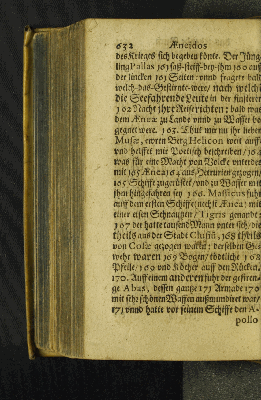 632 Æneidos
des Krieges sich begeben könte. Der Jüng-
ling Pallas 161 saß steiff bey ihm 100 auf
der lincken 101 Seiten: und fragete bald
welch das Gestirnte were/ nach welch
die Seefahrende Leute in der finstern
102 Nacht ihre Reise richten: bald was
dem Ænea zu Lande und zu Wasser be-
gegnet were. 103. Thut mir nu ihr lieben
Musæ, ewren Berg Helicon weit auff/
und helffet mir Poetisch beschreiben/ 104
was für eine Macht von Volcke unterdes
mit 105 Ænea 164 aus Hetrurien gezogen/
105 Schiffe zugerüstet/ und zu Wasser mit
ihm hingefahren sey 106. Massicus fuhr
auff dem ersten Schiffe (nechst Ænea) mit
einer eisern Schnautzen/ Tigris genandt:
107 der hatte tausend Mann unter sich/ die
theils aus der Stadt Clusiû, 168 theils
von Cosæ gezogen waren: derselben Ge-
wehr waren 169 Bogen/ tödtliche 168
Pfeile/ 169 und Köcher auff den Rücken.
170. Auff einem anderen fuhr der gestren-
ge Abas, dessen gantze 171 Armade 170
mit sehr schönen Waffen außmundiret war/
171 und hatte vor seinem Schiffe den A-
pollo